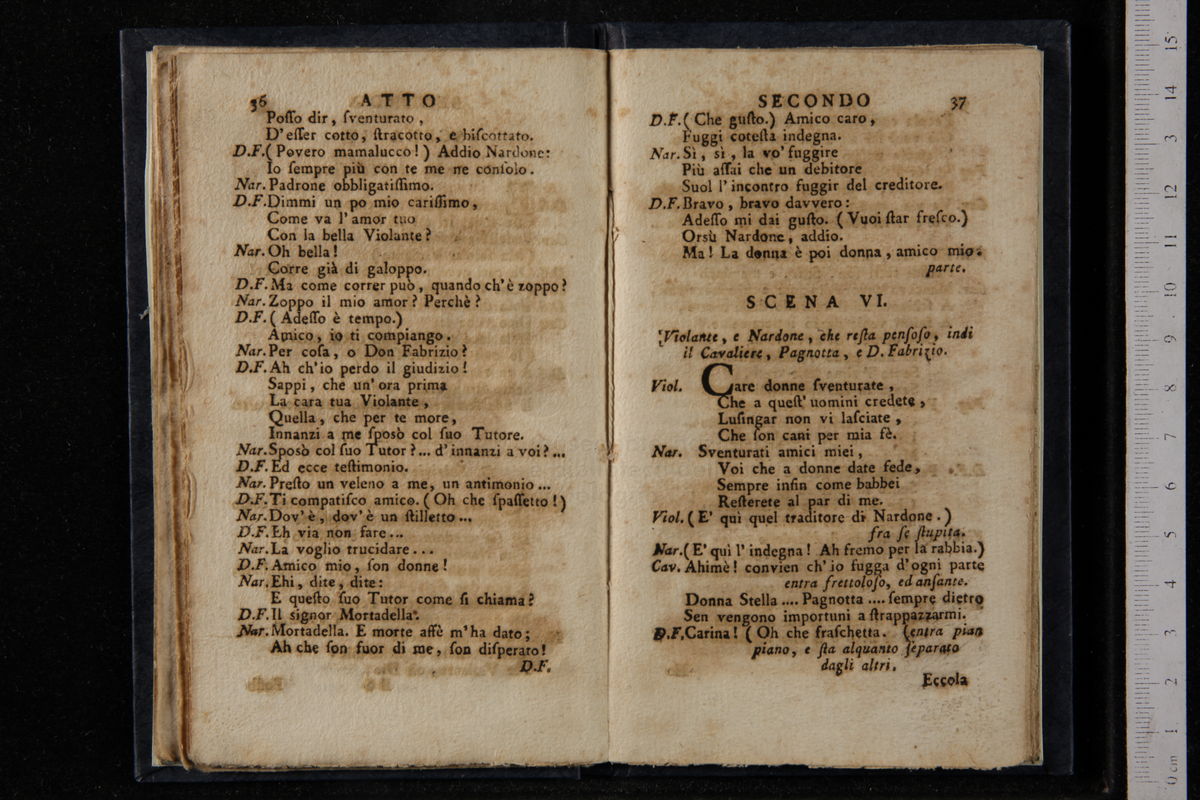 36 ATTO
Poſſo dir, ſventurato,
D'eſſer cotto, ſtracotto, e biſcottato.
D.F.(Povero mamalucco!) Addio Nardone:
Io ſempre più con te me ne conſolo.
Nar. Padrone obbligatiſſimo.
D.F.Dimmi un po mio cariſſimo,
Come va l'amor tuo
Con la bella Violante?
Nar. Oh bella!
Corre già di galoppo.
D.F. Ma come correr può, quando ch'è zoppo?
Nar. Zoppo il mio amor? Perchè?
D.F. (Adeſſo è tempo.)
Amico, io ti compiango.
Nar. Per coſa, o Don Fabrizio?
D.F. Ah ch'io perdo il giudizio!
Sappi, che un'ora prima
La cara tua Violante,
Quella, che per te more,
Innanzi a me ſposò col ſuo Tutore.
Nar. Sposò col ſuo Tutor?... d'innanzi a voi?...
D.F. Ed ecce teſtimonio.
Nar. Preſto un veleno a me, un antimonio...
D.F. Ti compatiſco amico. (Oh che ſpaſſetto!)
Nar. Dov'è, dov'è un ſtilletto...
D.F. Eh via non fare...
Nar. La voglio trucidare...
D.F. Amico mio, ſon donne!
Nar. Ehi, dite, dite:
E queſto ſuo Tutor come ſi chiama?
D.F. Il signor Mortadella.
Nar. Mortadella. E morte affè m'ha dato;
Ah che ſon fuor di me, ſon diſperato!
D.F.
SECONDO 37
D.F. (Che guſto.) Amico caro,
Fuggi coteſta indegna.
Nar. Sì, sì, la vo' fuggire
Più aſſai che un debitore
Suol l'incontro fuggir del creditore.
D.F. Bravo, bravo davvero:
Adeſſo mi dai guſto. (Vuoi ſtar freſco.)
Orsù Nardone, addio.
Ma! La donna è poi donna, amico mio.
parte.
SCENA VI.
Violante, e Nardone, che reſta penſoſo, indi
il Cavaliere, Pagnotta, e D. Fabrizio.
Viol. Care donne ſventurate,
Che a queſt'uomini credete,
Luſingar non vi laſciate,
Che ſon cani per mia fè.
Nar. Sventurati amici miei,
Voi che a donne date fede,
Sempre inſin come babbei
Reſterete al par di me.
Viol. (E' quì quel traditore di Nardone.)
fra ſe ſtupita.
Nar. (E' quì l'indegna! Ah fremo per la rabbia.)
Cav. Ahimè! convien ch'io fugga d'ogni parte
entra frettoloſo, ed anſante.
Donna Stella.... Pagnotta.... ſempre dietro
Sen vengono importuni a ſtrappazzarmi.
D.F. Carina! (Oh che fraſchetta. (entra pian
piano, e ſta alquanto ſeparato
dagli altri.
Eccola
0 cm 1 2 3 4 5 6 7 8 9 10 11 12 13 14 15